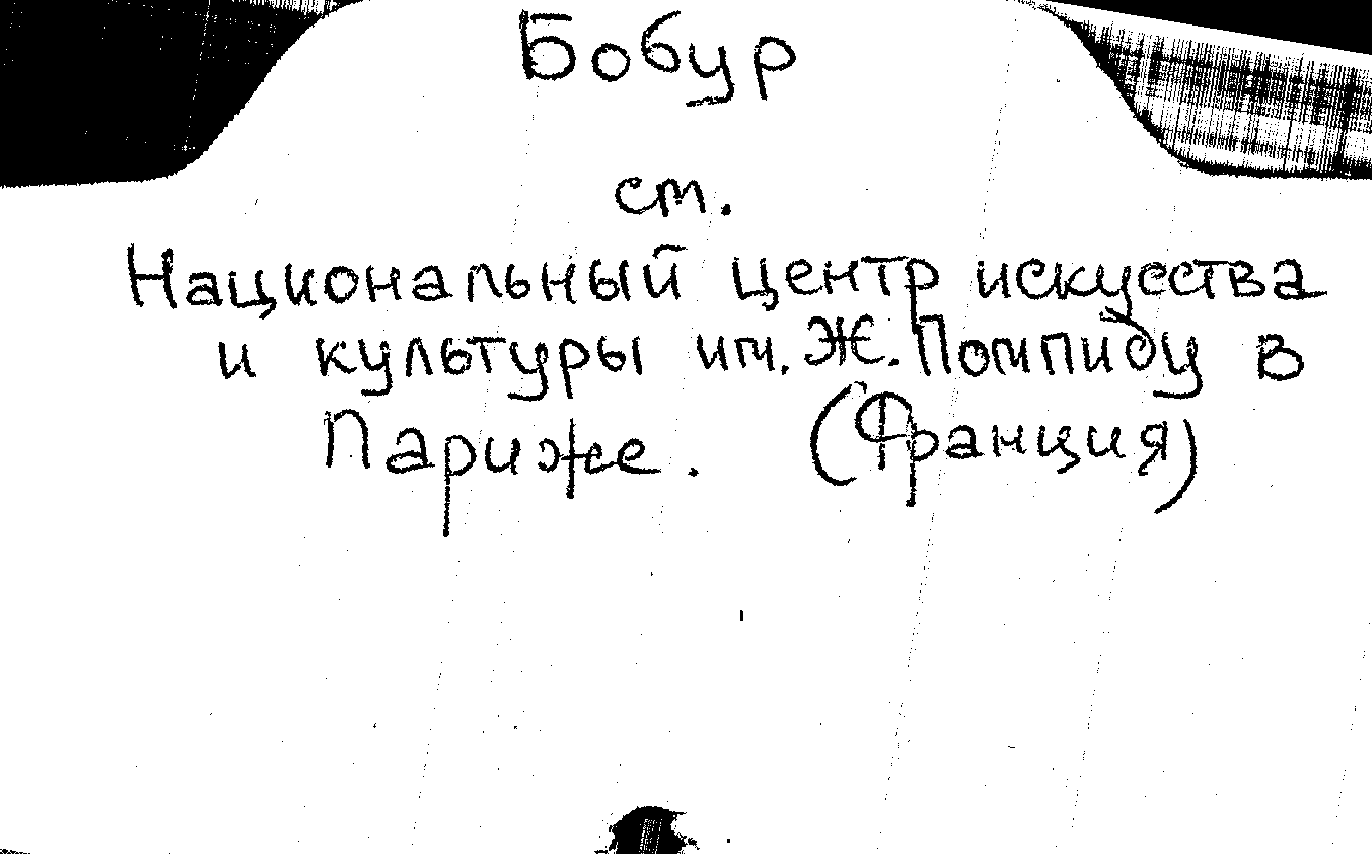 Бобур
ст.
Национальный центр искусства
и культуры им. Ж. Помпиду в
Париже. (Франция)